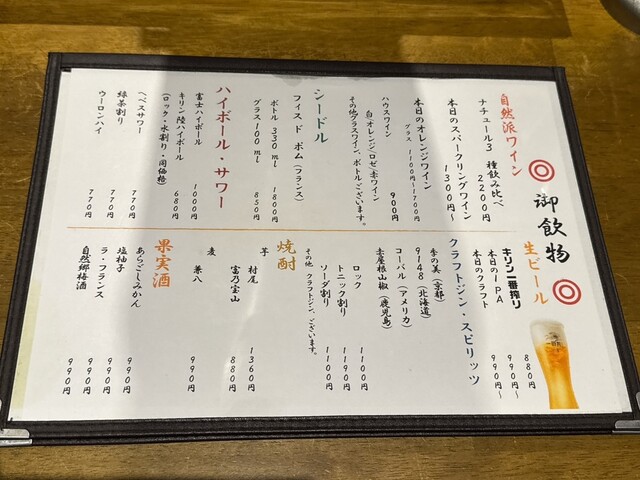 御飲物
自然派ワイン
ナチュール3種飲み比べ
2200円
本日のスパークリングワイン
1300円〜
本日のオレンジワイン
グラス 1100円〜1700円
ハウスワイン
白/オレンジ/ロゼ/赤ワイン
900円
その他グラスワイン、ボトルございます。
シードル
フィス ド ポム(フランス)
ボトル 330ml 1800円
グラス 100ml 850円
ハイボール・サワー
富士ハイボール 1000円
キリン陸ハイボール 680円
(ロック・水割り・同価格)
ヘベスサワー 770円
緑茶割り 770円
ウーロンハイ 770円
生ビール
キリン一番搾り 880円
本日のIPA 990円〜
本日のクラフト 990円〜
クラフトジン・スピリッツ
季の美(京都)
9148(北海道)
コーバル(アメリカ)
赤屋根山椒(鹿児島)
ロック 1100円
トニック割り 1190円
ソーダ割り 1100円
その他 クラフトジン、ございます。
焼酎
芋
村尾 1360円
富乃宝山 880円
麦
兼八 990円
果実酒
あらごしみかん 990円
塩柚子 990円
ラ・フランス 990円
自然郷梅酒 990円